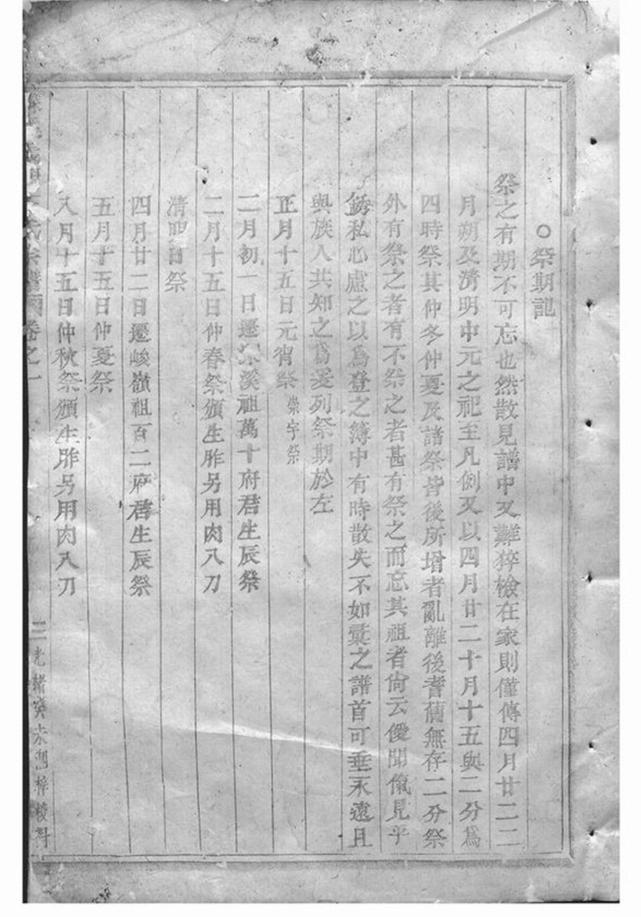 ○祭期記
祭之有期不可忘也然散見譜中又難猝檢在家則僅傳四月廿二二
月朔及清明中元之祀至凡例又以四月廿二十月十五與二分為
四時祭其仲冬仲夏及諸祭皆後所增者亂離後耆舊無存二分祭
外有祭之者有不祭之者甚有祭之而忘其祖者尙云僾聞愾見乎
私心慮之以爲登之簿中有時散失不如彙之譜首可垂永遠且
與族人共知之爲爰列祭期於左
正月十五日元宵祭 崇字祭
二月初一日遷 溪祖萬十府君生辰祭
二月十五日仲春祭頒生胙另用肉八刀
清明日祭
四月廿二日遷峻嶺祖百二府君生辰祭
五月十五日仲夏祭
八月十五日仲秋祭頒生胙另用肉八刀
宗譜 卷之一 三 光緒 未 梓